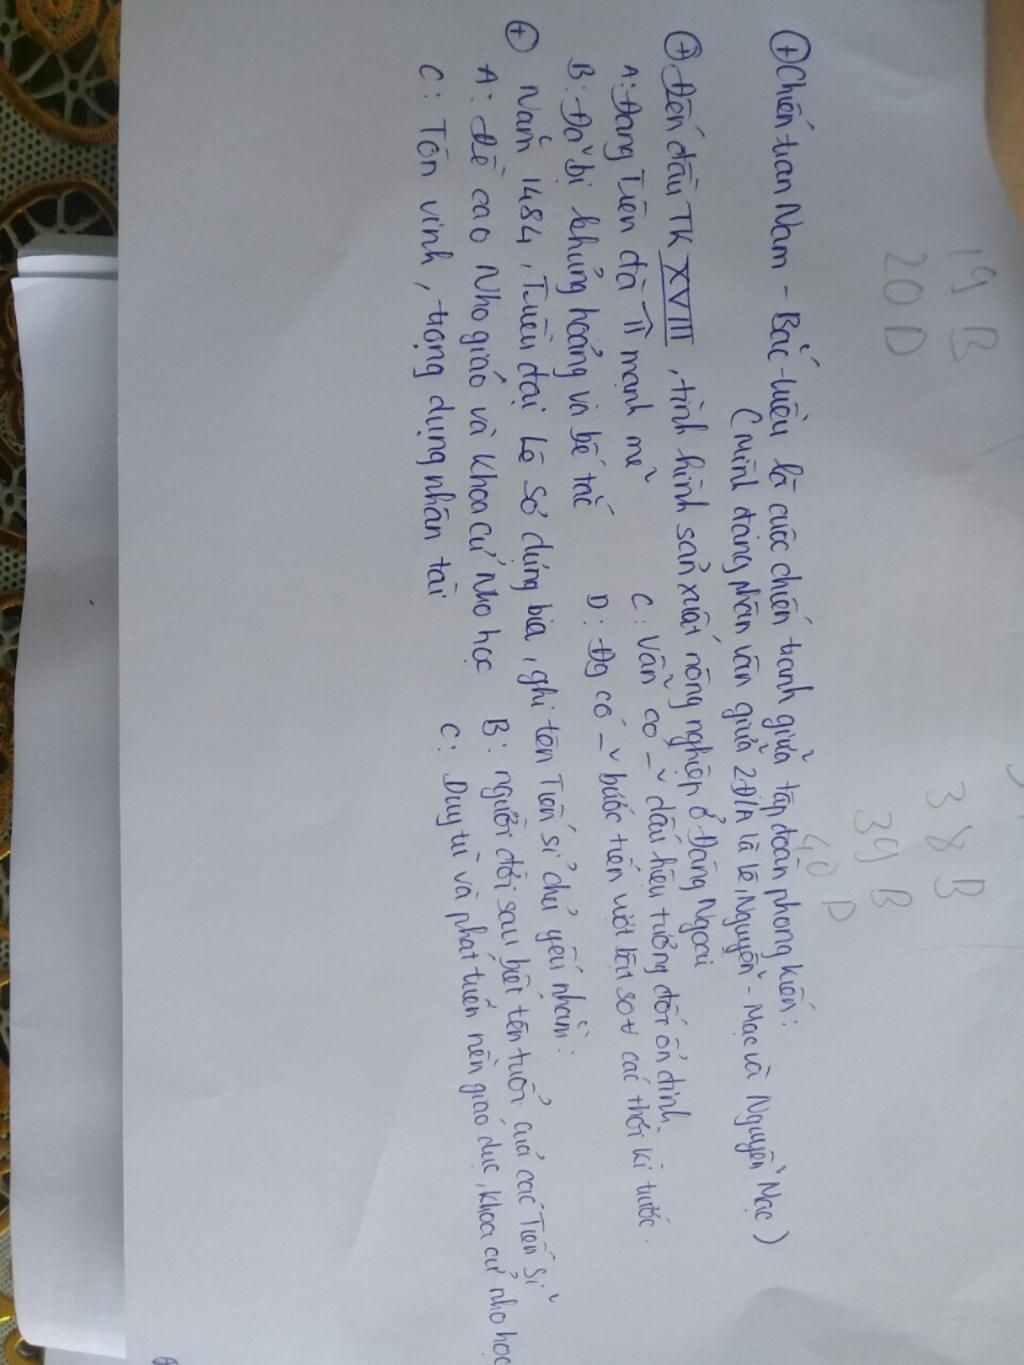 19 B
20 D
38 B
39 B
40 D
+ Chiến tran Nam - Bắc triều là cuộc chiến tranh giữa tập đoàn phong kiến:
( Mình đang phân vân giữa 2Đ/A là Lê, Nguyễn - Mạc và Nguyễn Mạc )
+ Đến đầu TK XVIII , tình hình sản xuất nông nghiệp ở Đàng Ngoài
A: Đang trên đà π mạnh mẽ
C: Vẫn có _ ̃ dấu hiệu tương đối ổn định.
B: Đã bị khủng hoảng và bế tắc
D: Đg có _ ̃ bước tiến vượt bật so v các thời kì trước.
+ Năm 1484, Triều đại Lê sơ dựng bia, ghi tên Tiến sĩ chủ yếu nhằm:
A: Đề cao Nho giáo và khoa cử Nho học
B: người đời sau biết tên tuổi của các Tiến sĩ
C: Tôn vinh, trọng dụng nhân tài
C: Duy trì và phát triển nền giáo dục, khoa cử nho học